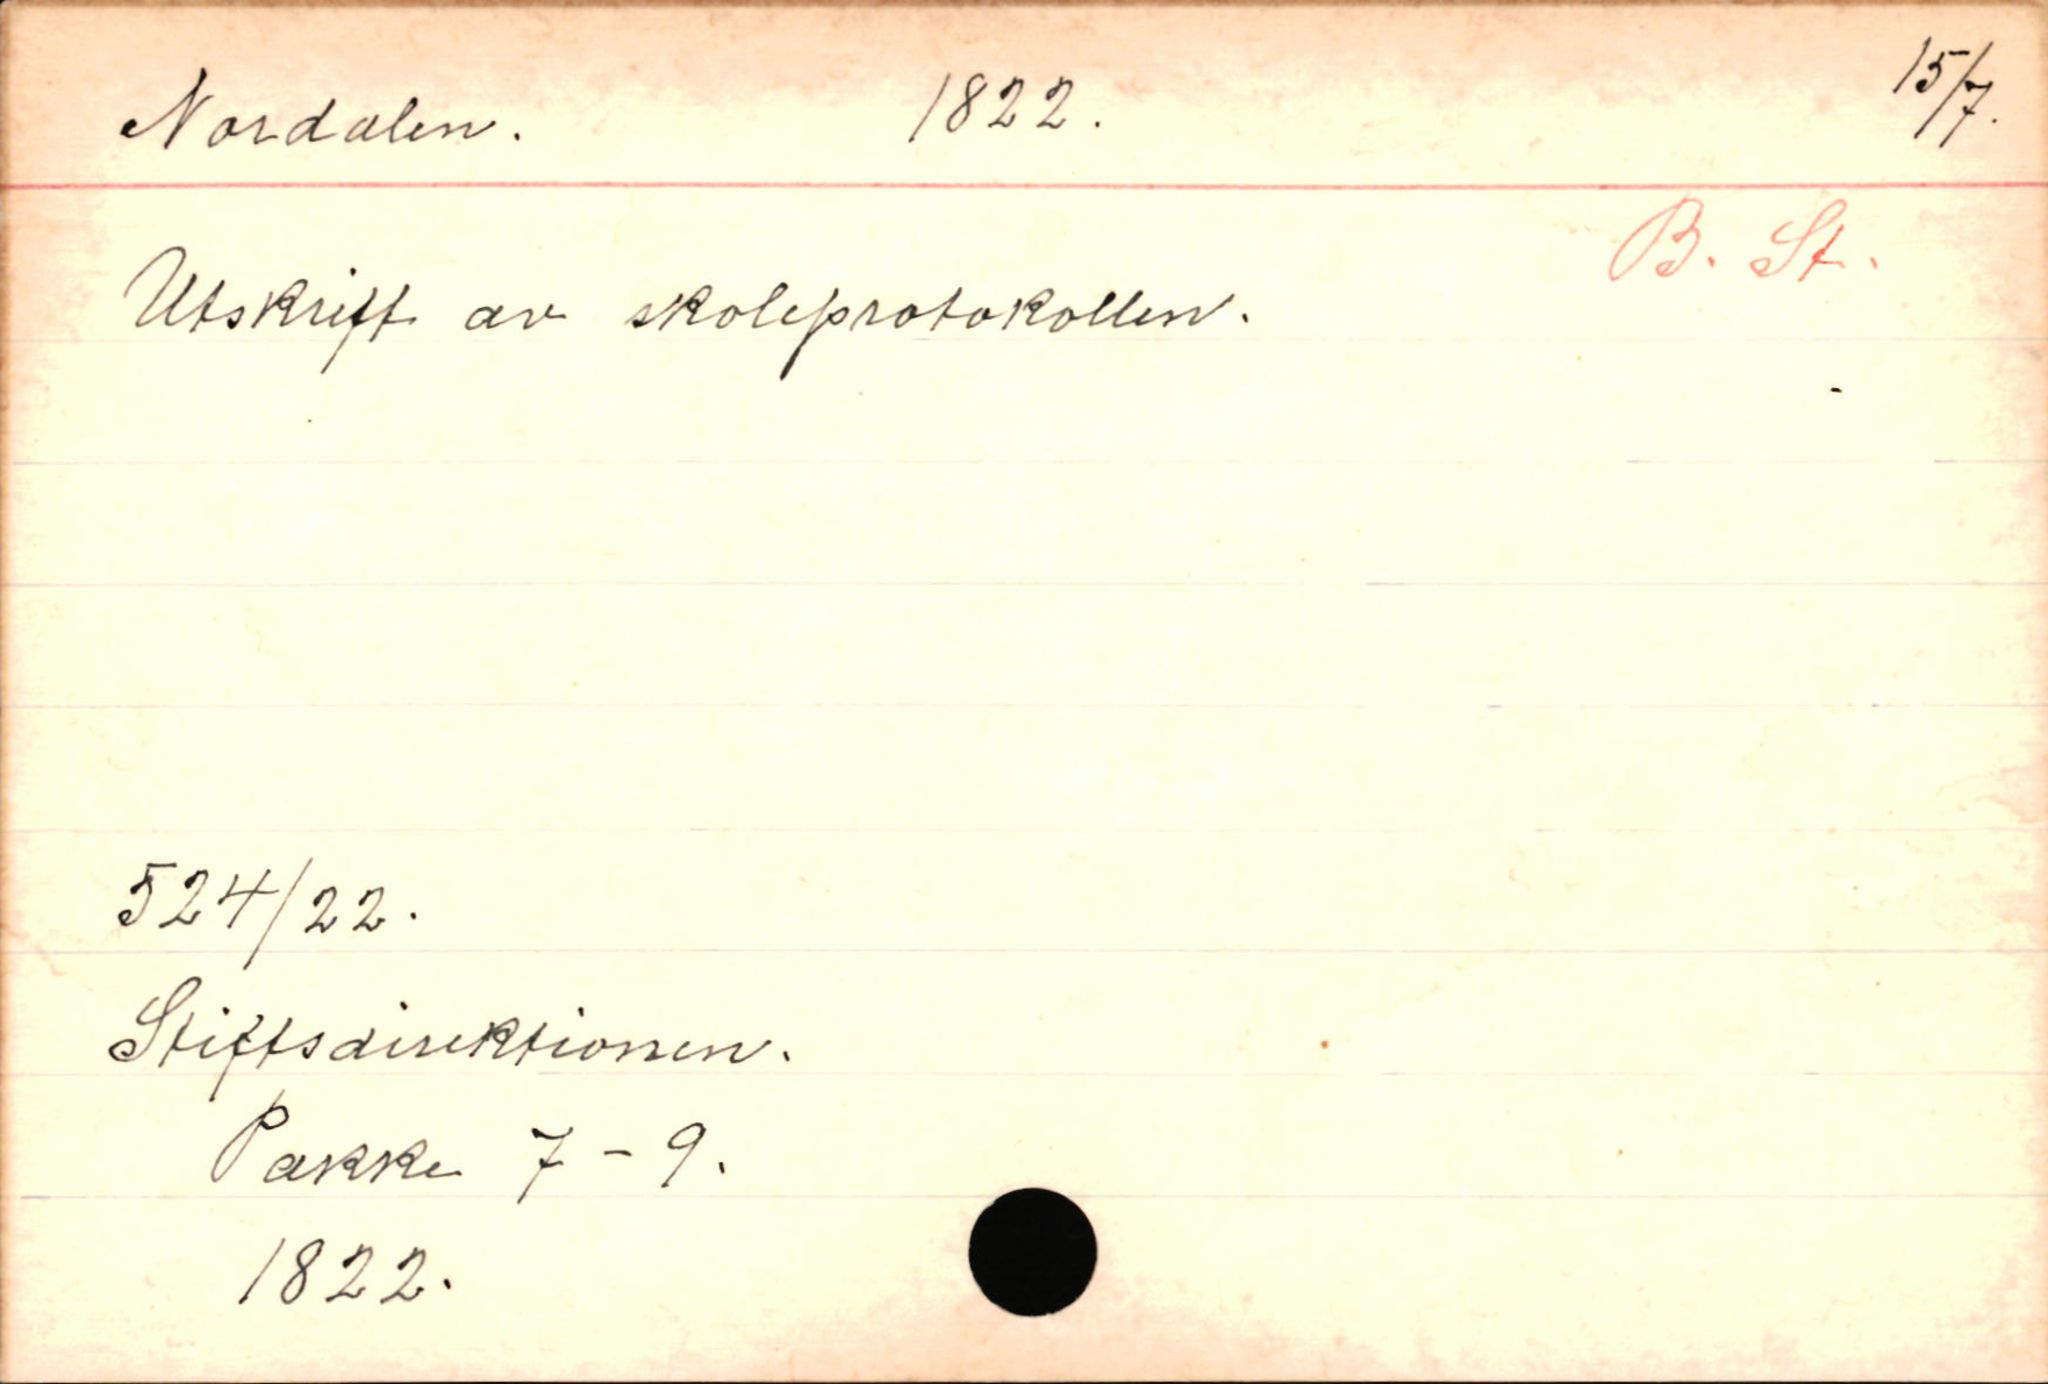 Nordalen. 1822. 15/7.
B. St.
Utskrift av skoleprotokollen.
524/22.
Stiftsdirektionen.
Pakke 7-9.
1822.